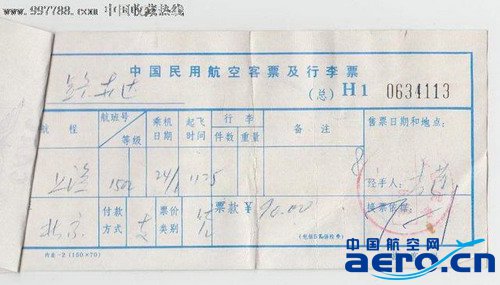 www.997788.com 中国收藏热线
中国民用航空客票及行李票
(总) H1 0634113
航程 航班号 等级 乘机日期 起飞时间 行李 件数 重量 备注 售票日期和地点:
上海 1502 24/ 1125
经手人:
北京 付款方式 支 票价类别 票款¥ 90.00 换票凭证:
内运-2 (150×70)
中国航空网
aero.cn